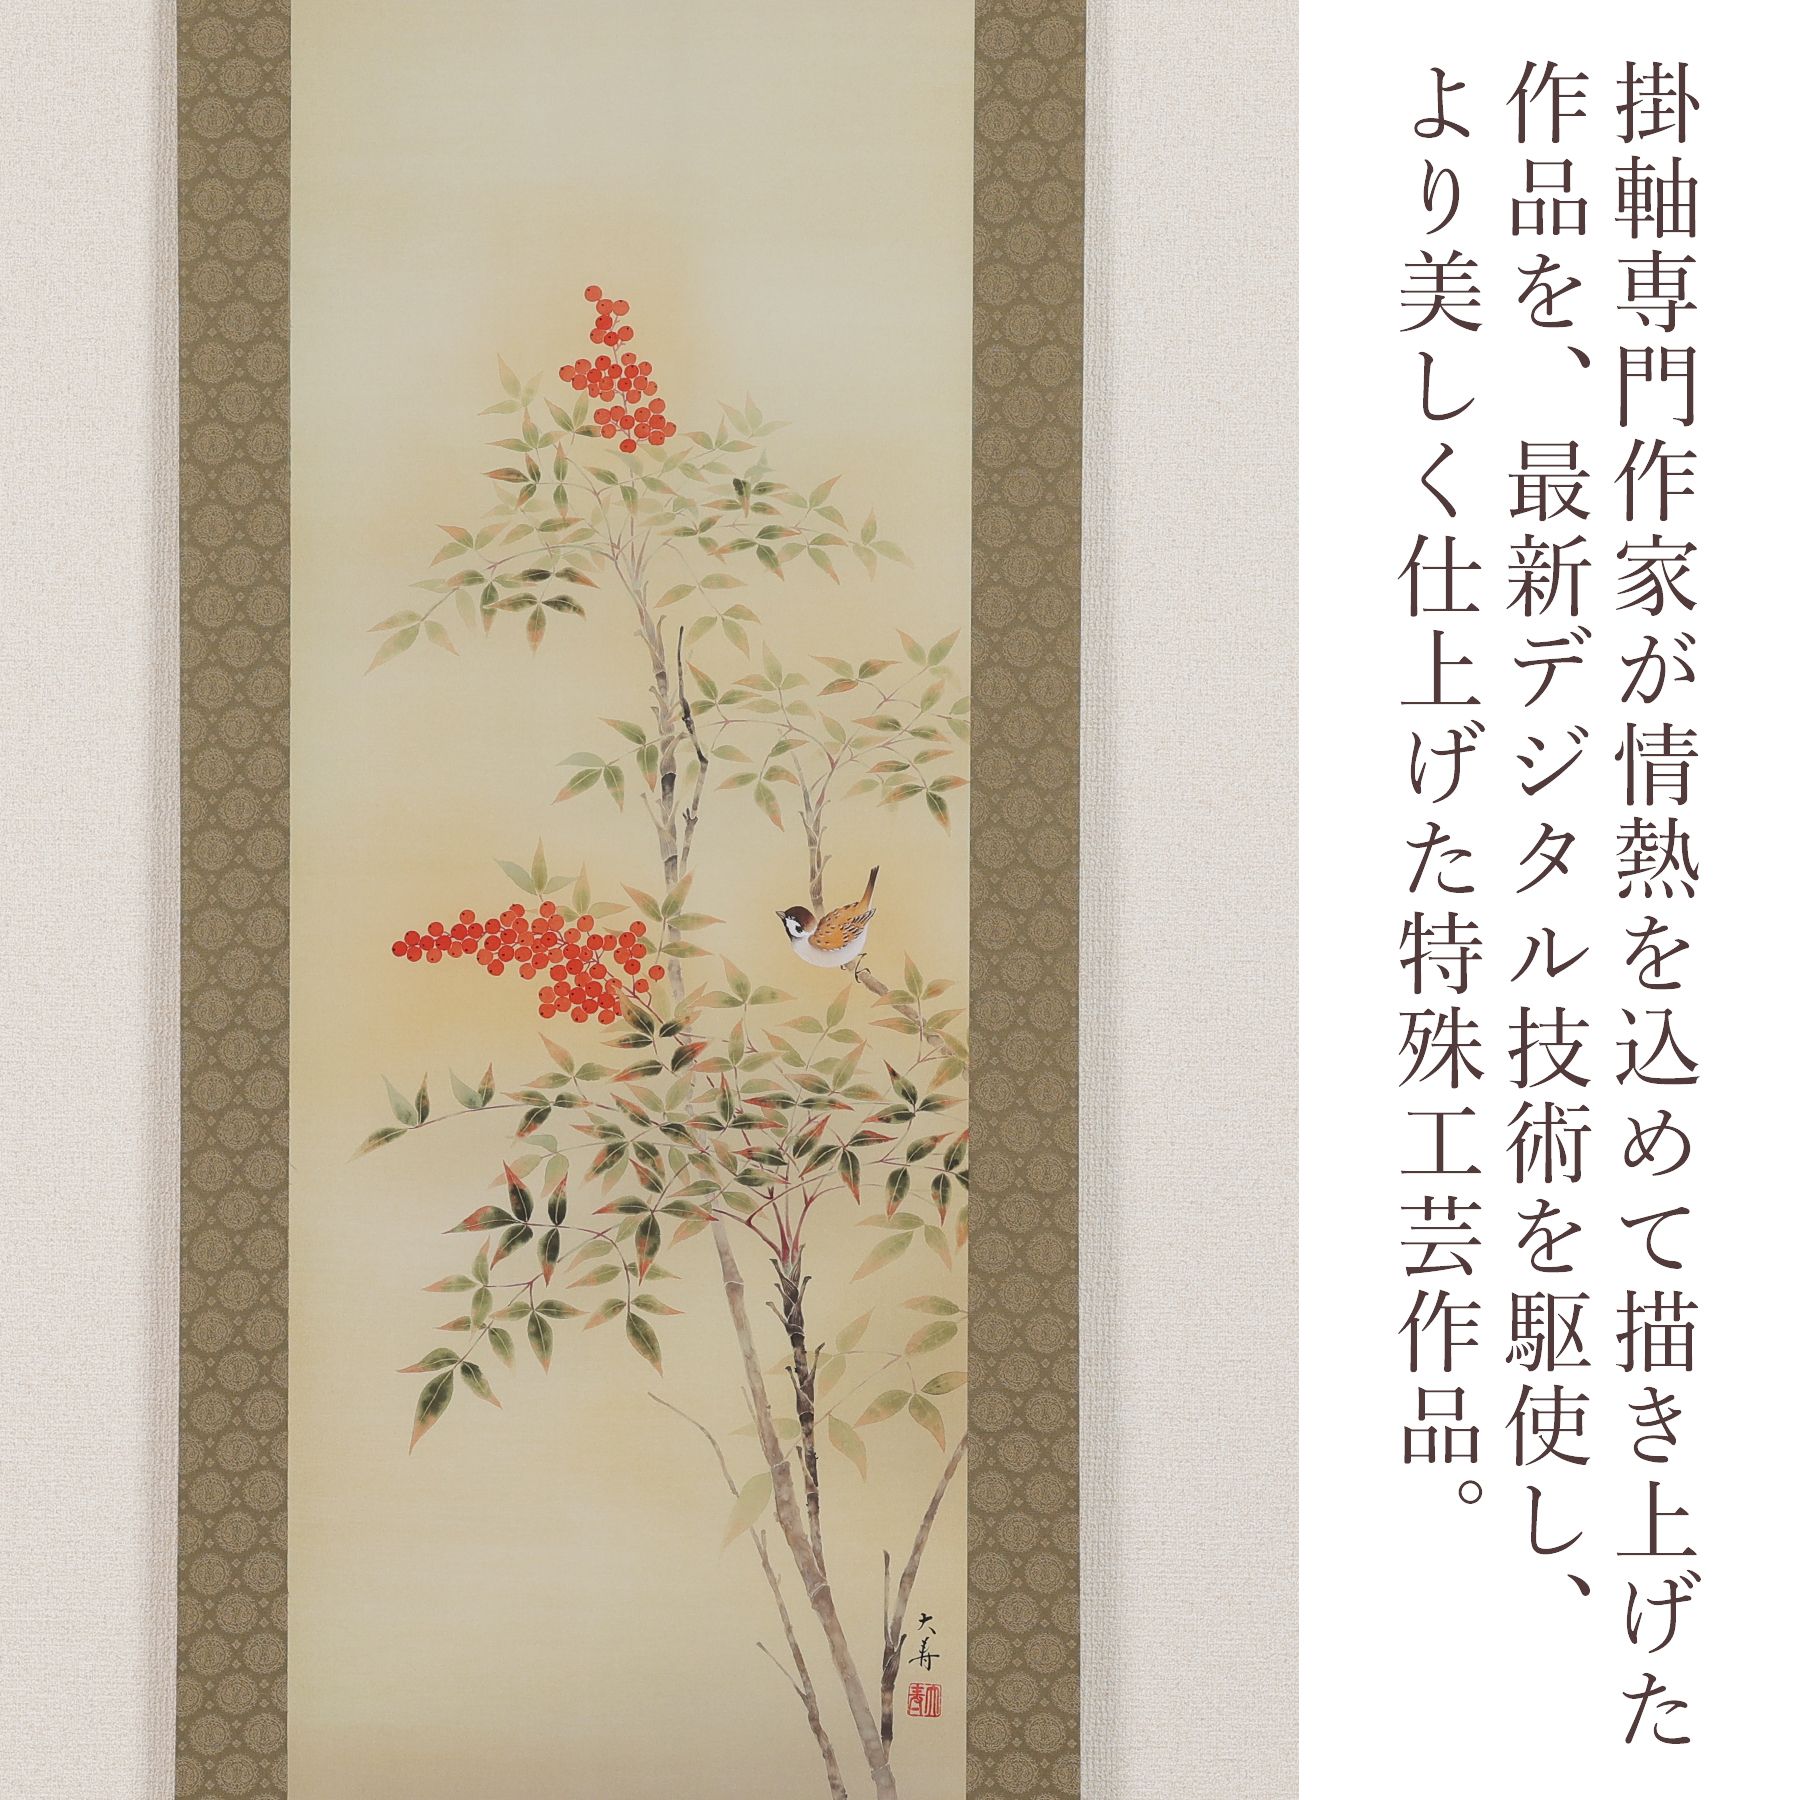 掛軸専門作家が情熱を込めて描き上げた
作品を、最新デジタル技術を駆使し、
より美しく仕上げた特殊工芸作品。
大寿